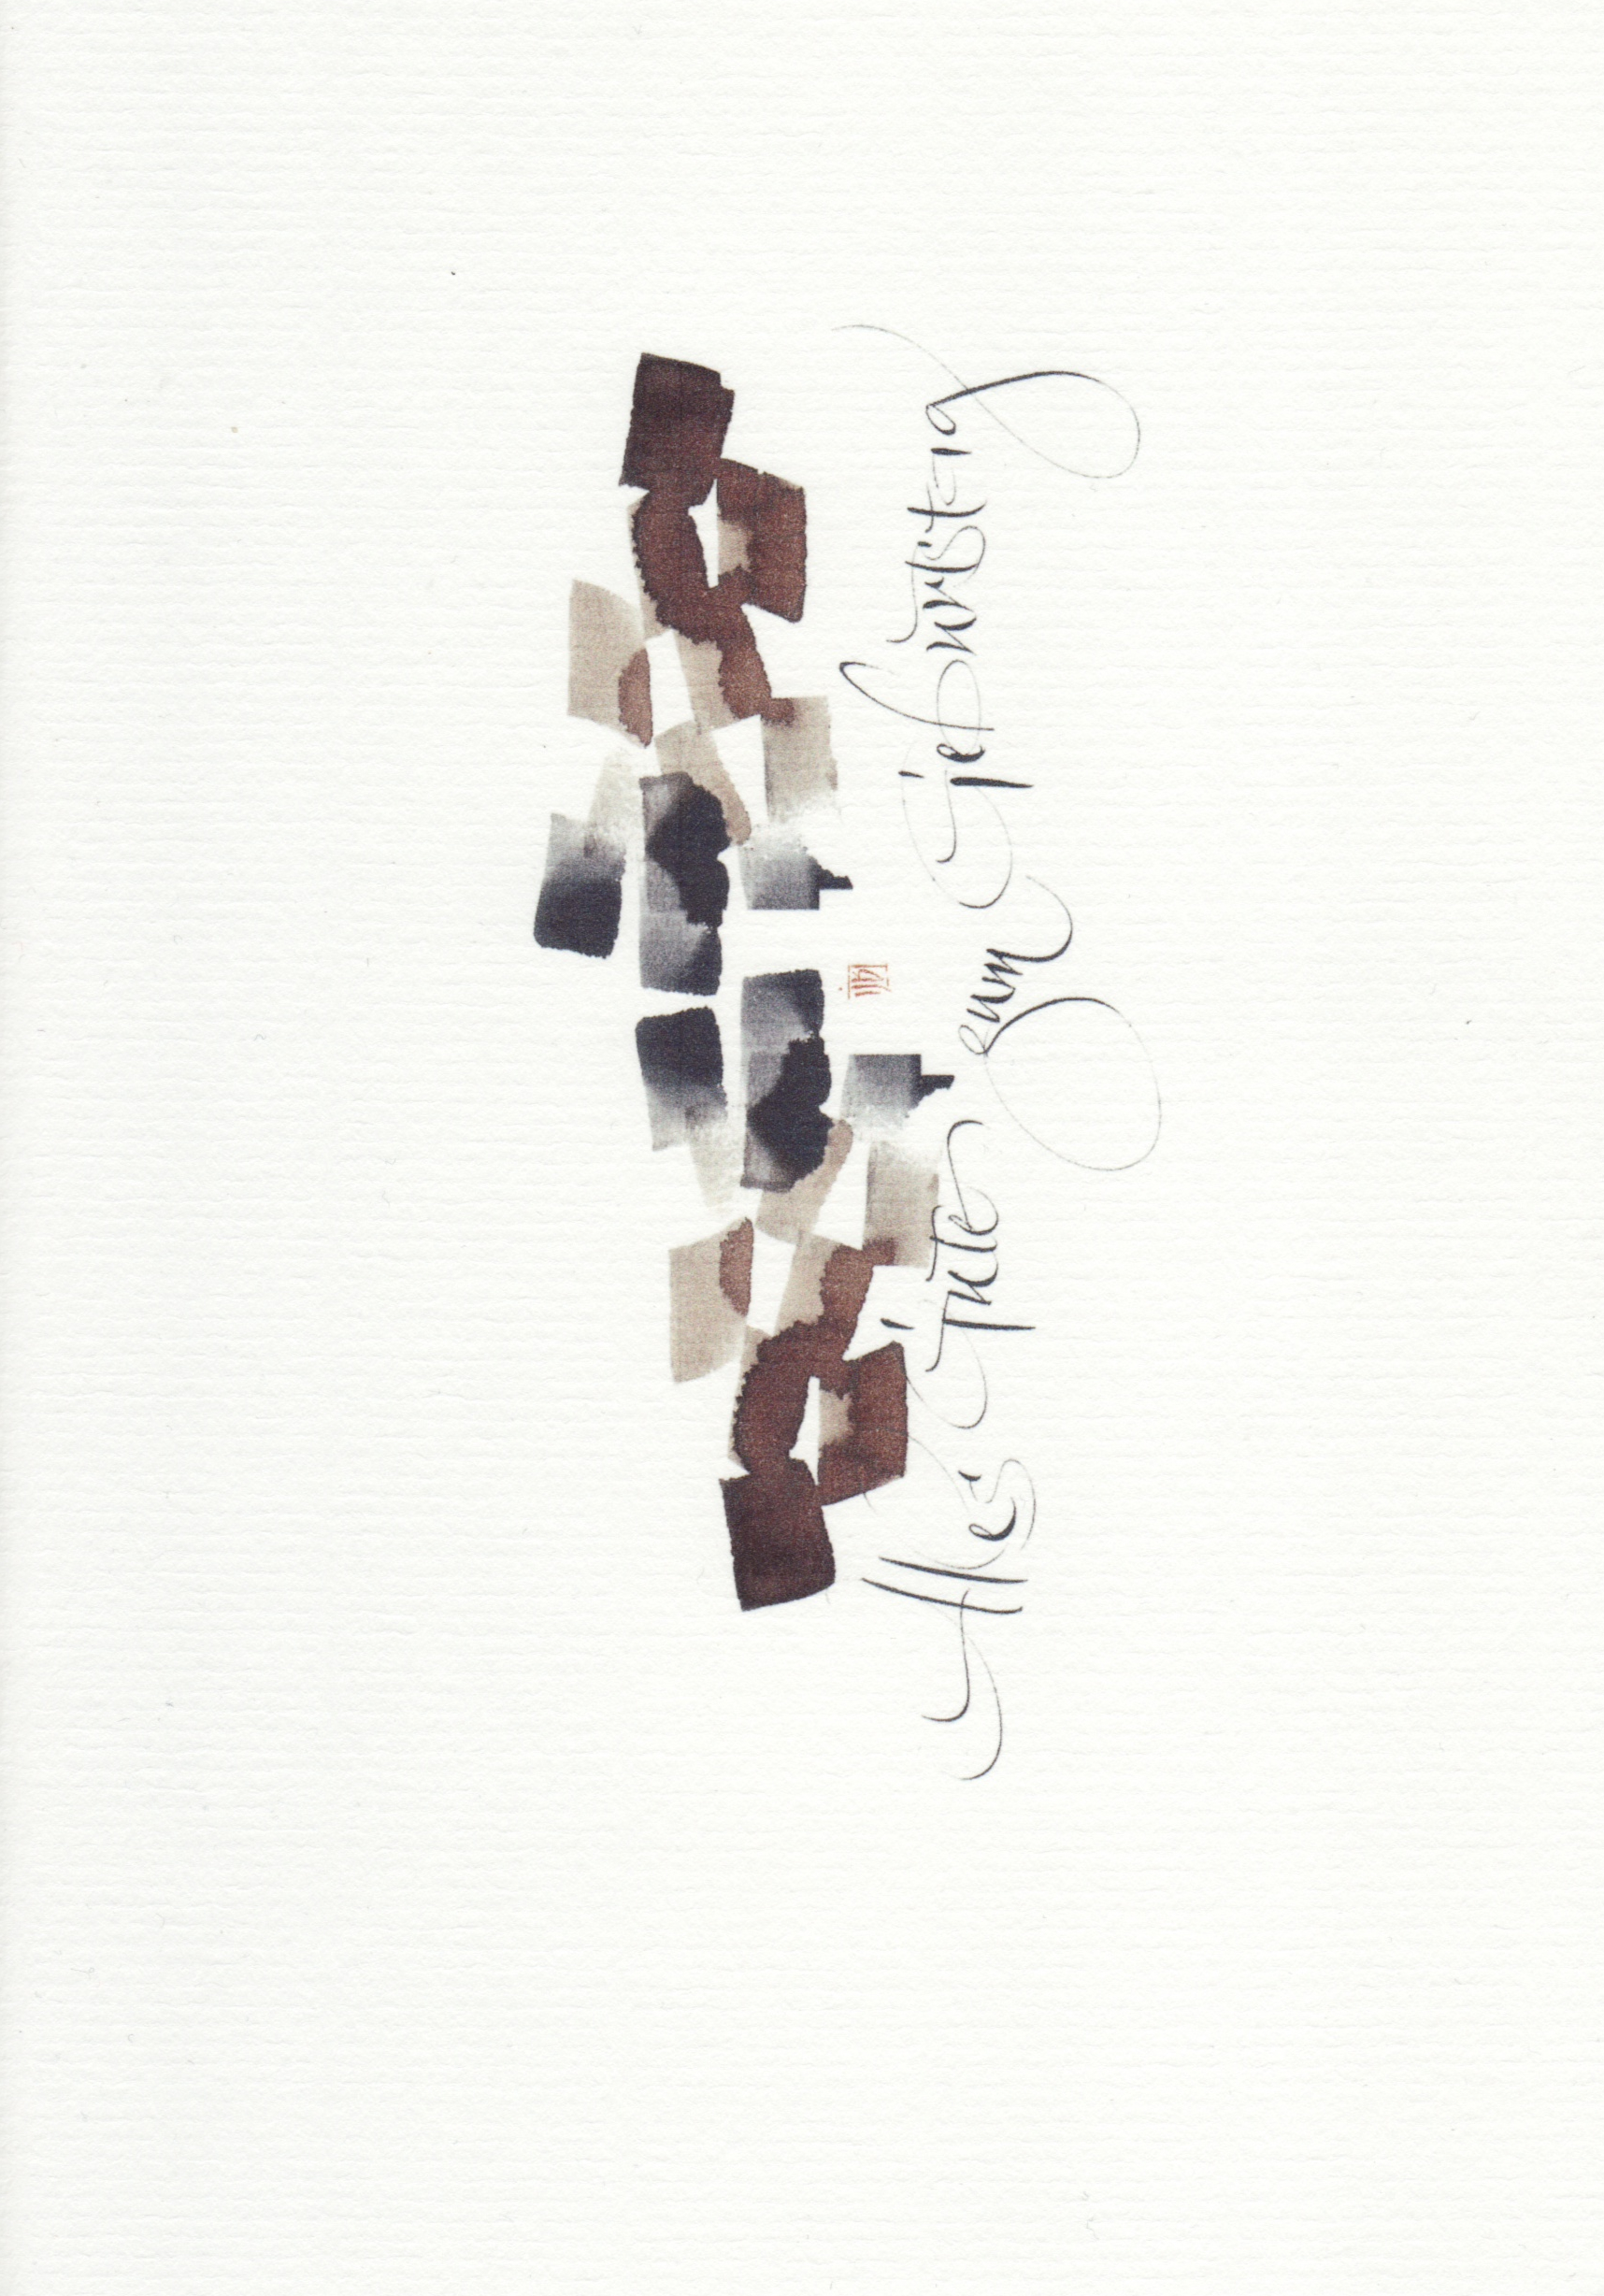 Alles Gute zum Geburtstag